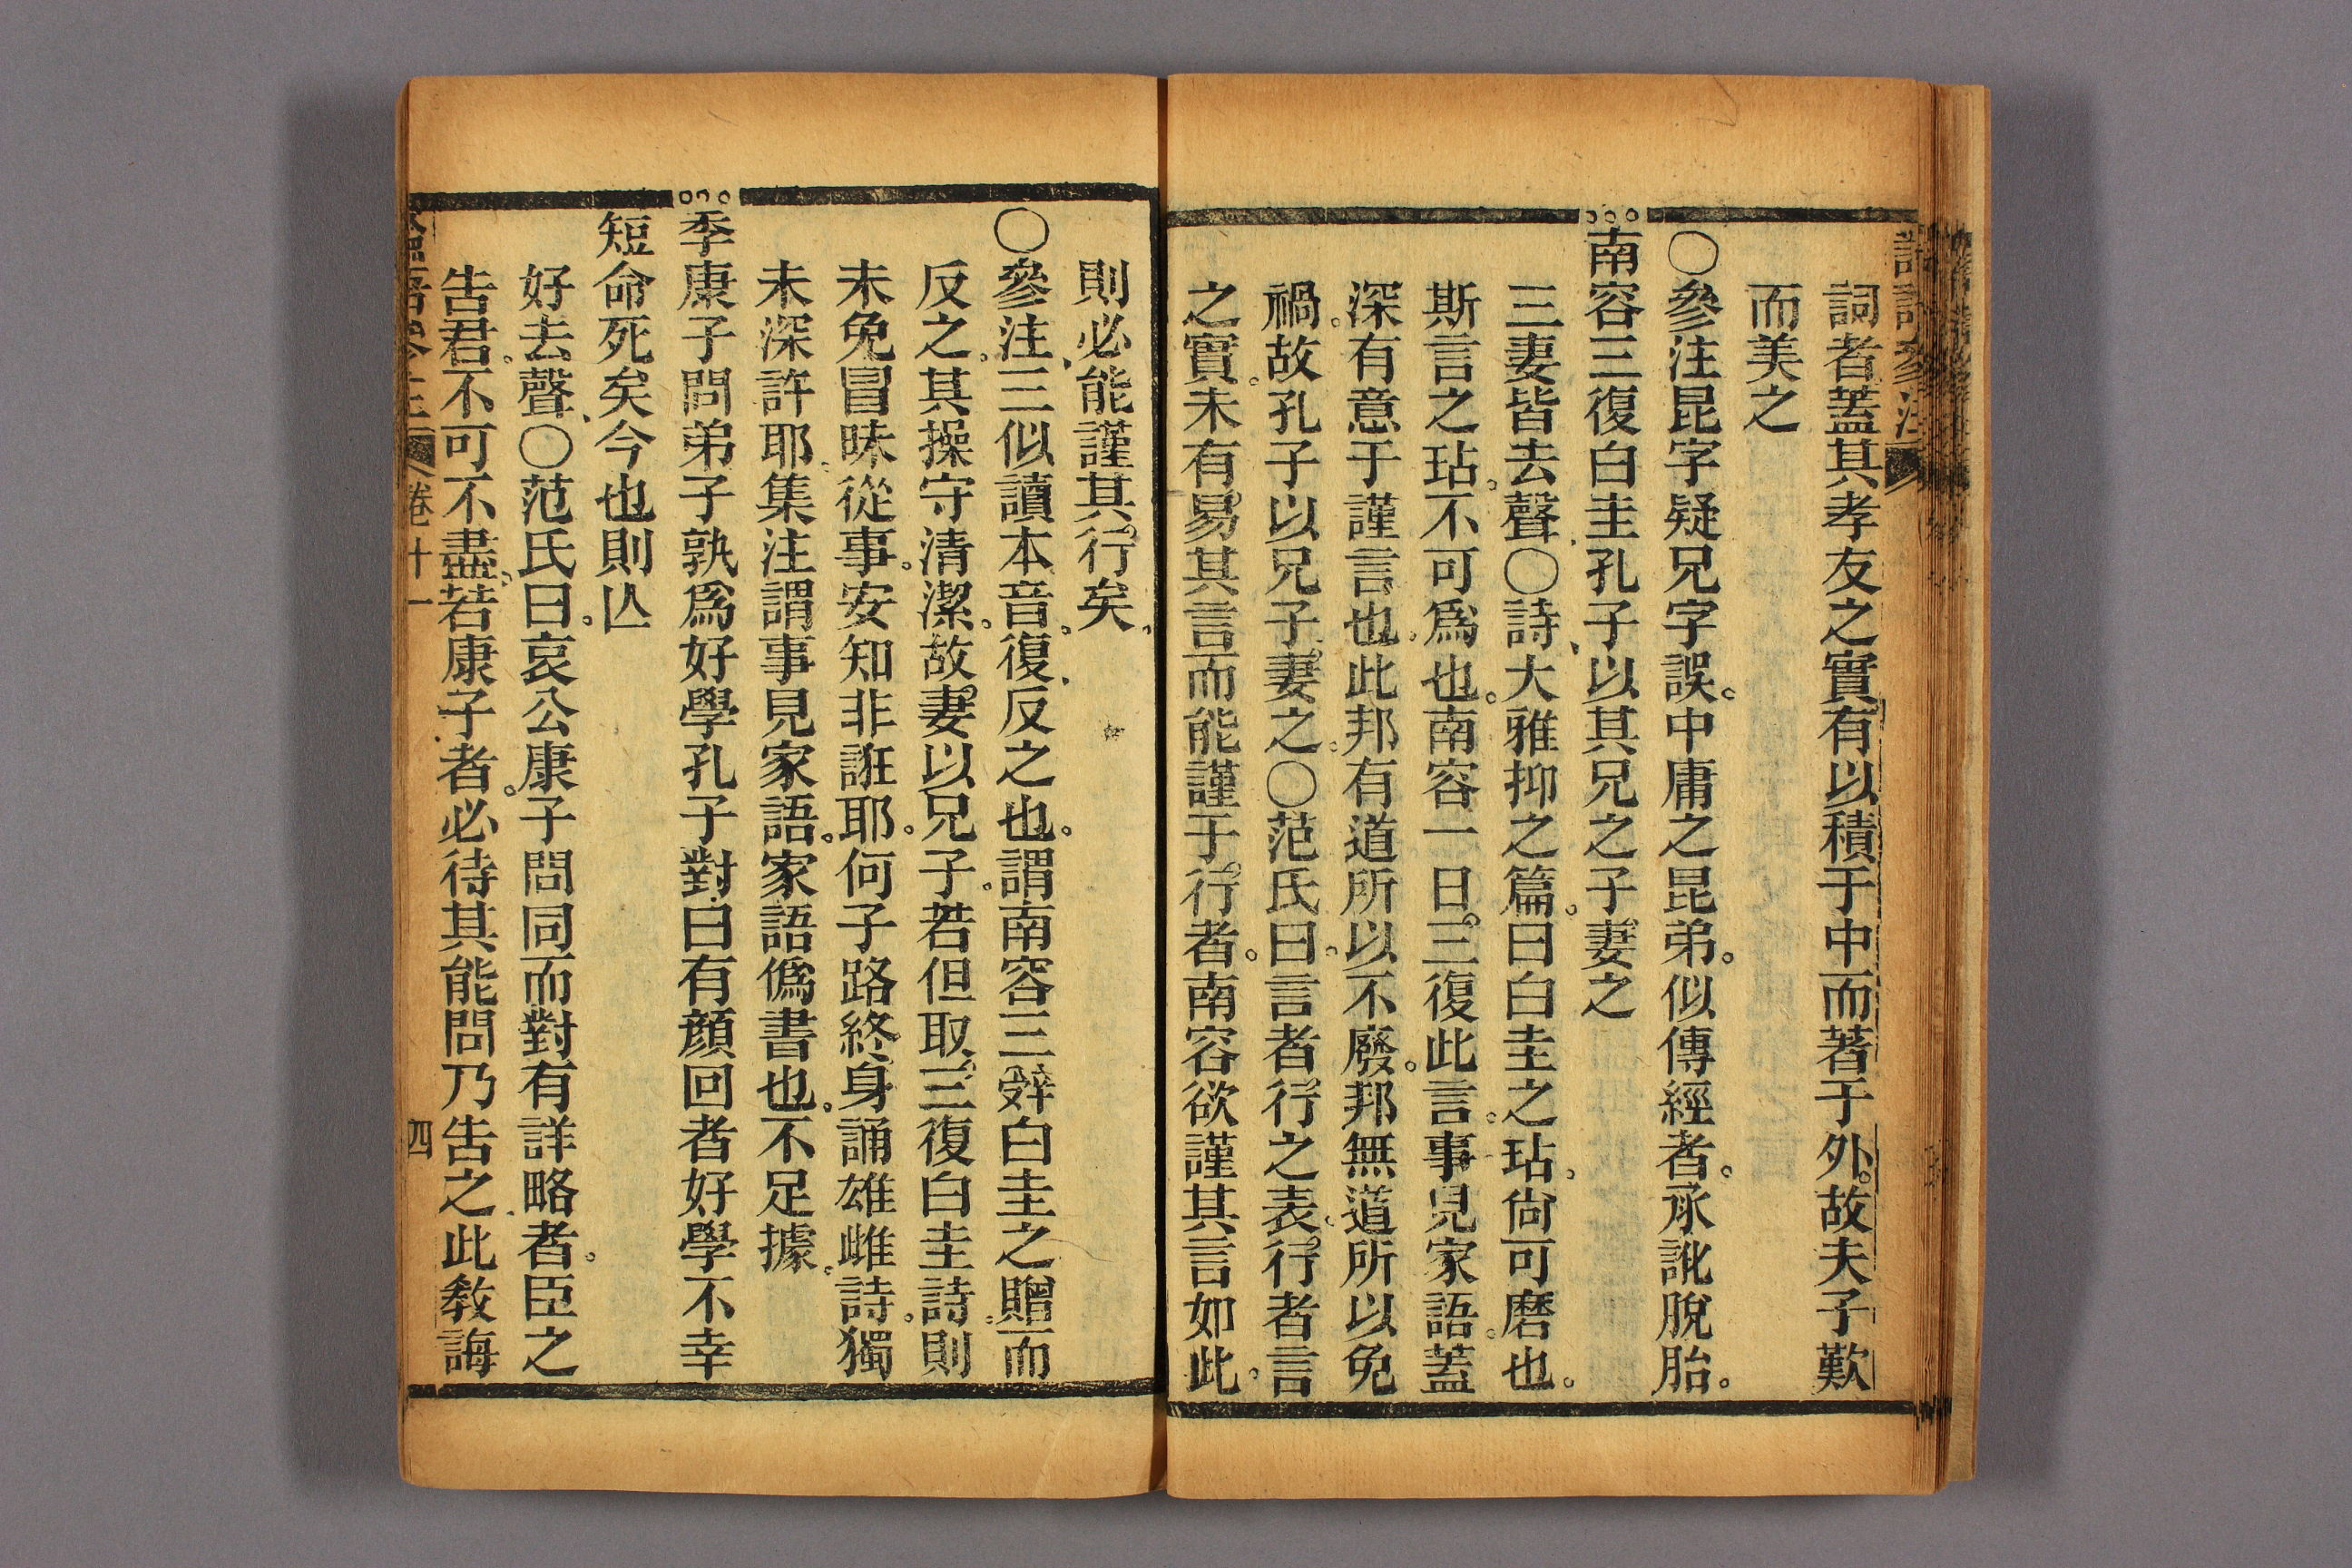 詞者蓋其孝友之實有以積于中而著于外故夫子歎
而美之
〇參注昆字疑兄字誤。中庸之昆弟。似傳經者。承訛脫胎。
南容三復白圭孔子以其兄之子妻之
三妻皆去聲〇詩大雅抑之篇。曰白圭之玷。尙可磨也。
斯言之玷。不可爲也。南容一日三復此言。事見家語。蓋
深有意于謹言也。此邦有道所以不廢。邦無道所以免
禍。故孔子以兄子妻之。〇范氏曰。言者行之表。行者言
之實。未有易其言而能謹于行者。南容欲謹其言如此。
則必能謹其行矣。
〇參注三似讀本音。復反之也。謂南容三辤白圭之贈而
反之。其操守清潔。故妻以兄子。若但取三復白圭詩。則
未免冒昧從事。安知非誑耶。何子路終身誦雄雌詩。獨
未深許耶。集注謂事見家語。家語僞書也。不足據。
季康子問弟子孰爲好學孔子對曰有顔回者好學不幸
短命死矣今也則亾
好去聲〇范氏曰。哀公康子問同而對有詳略者。臣之
告君。不可不盡。若康子者。必待其能問乃告之。此敎誨
卷十一
四